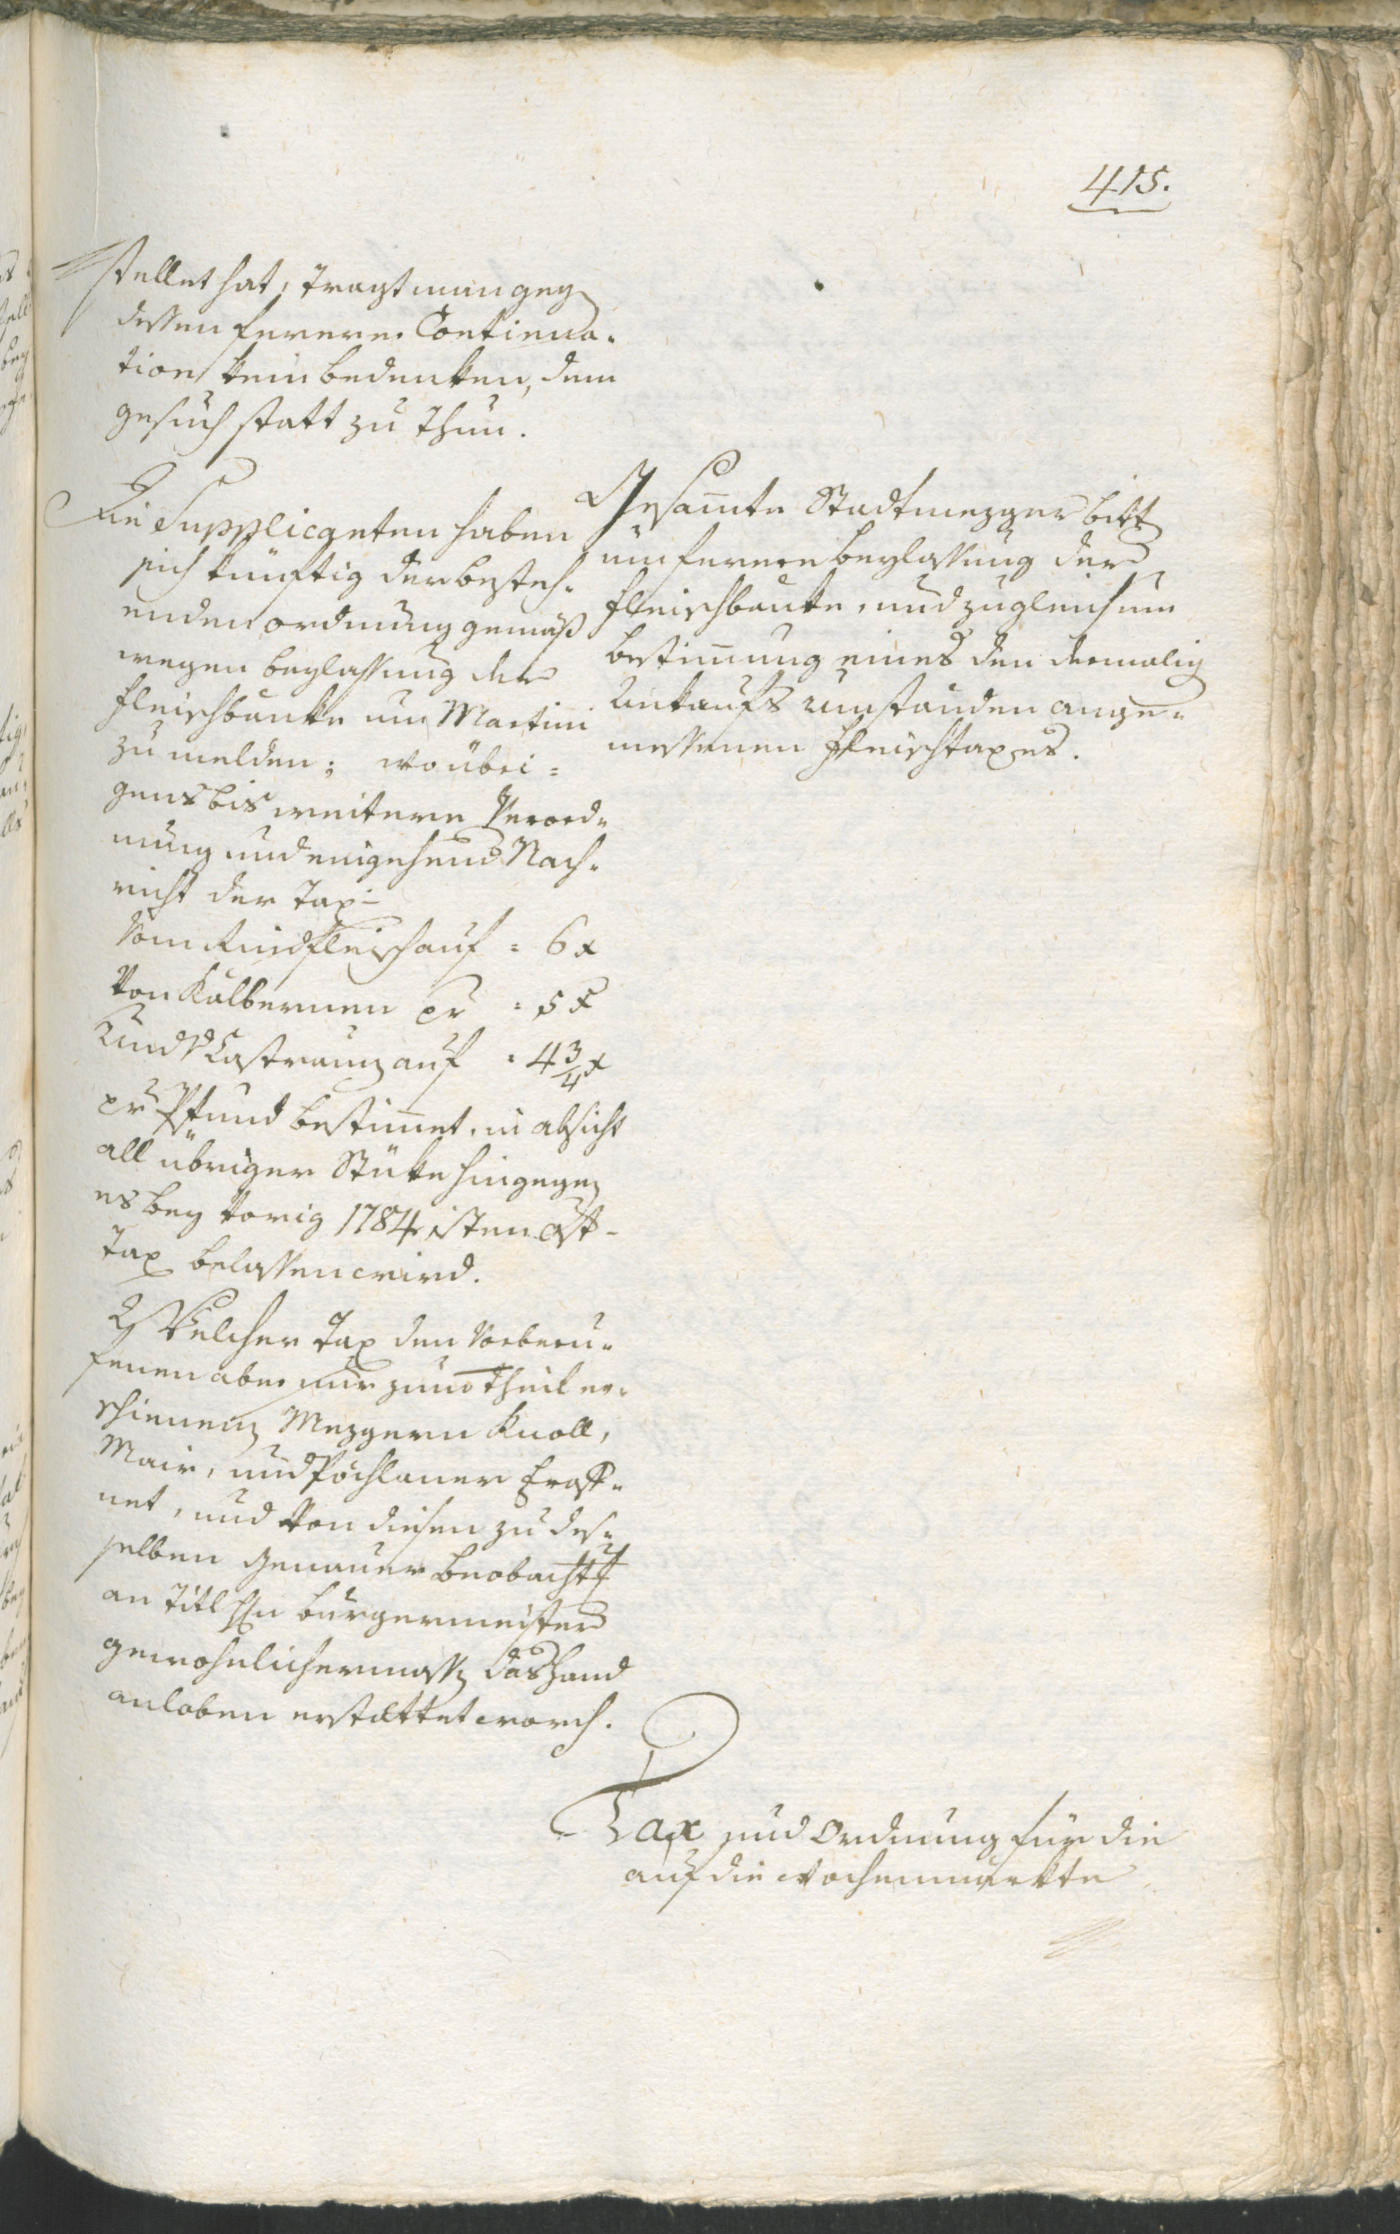 415.
stellet hat, tragt man geg
dessen ferere Contienua-
tion kein bedenken, dem
gesuch statt zu thun.
Die Supplicanten haben
sich künftig der besteh-
enden ordnung gemäß
wegen beylassung der
fleischbänke um Martini
zu melden; wo übri=
gens bis weitere Verord-
nung und eingehend Nach-
richt der Tax:
Vom Rindfleisch auf = 6 x
Von Kälbernen pr = 5 x
Und Castraun auf = 4 3/4 x
pr Pfund bestimet, in absicht
all übriger Stüke hingegen
es bey vorig 1784isten
Tax belassen wird.
Welcher Tax den Vorberu-
fenen aber nur zum theil er-
schienenen Mezgern Knoll,
Mair, und Pöchlaner Eröff-
net, und von diesen zu des-
selben genauer beobacht
an Titl Hn burgermeister
gewohnlichermassen das hand
anloben erstattet word.
Gesamte Stadtmezger bitt
um fernere beylassung der
fleischbänke, und zugleich um
bestimung eines den dermalig
Ankaufs Umständen ange-
messenen fleischtaxes.
Tax und Ordnung für die
auf die Wochenmärkte